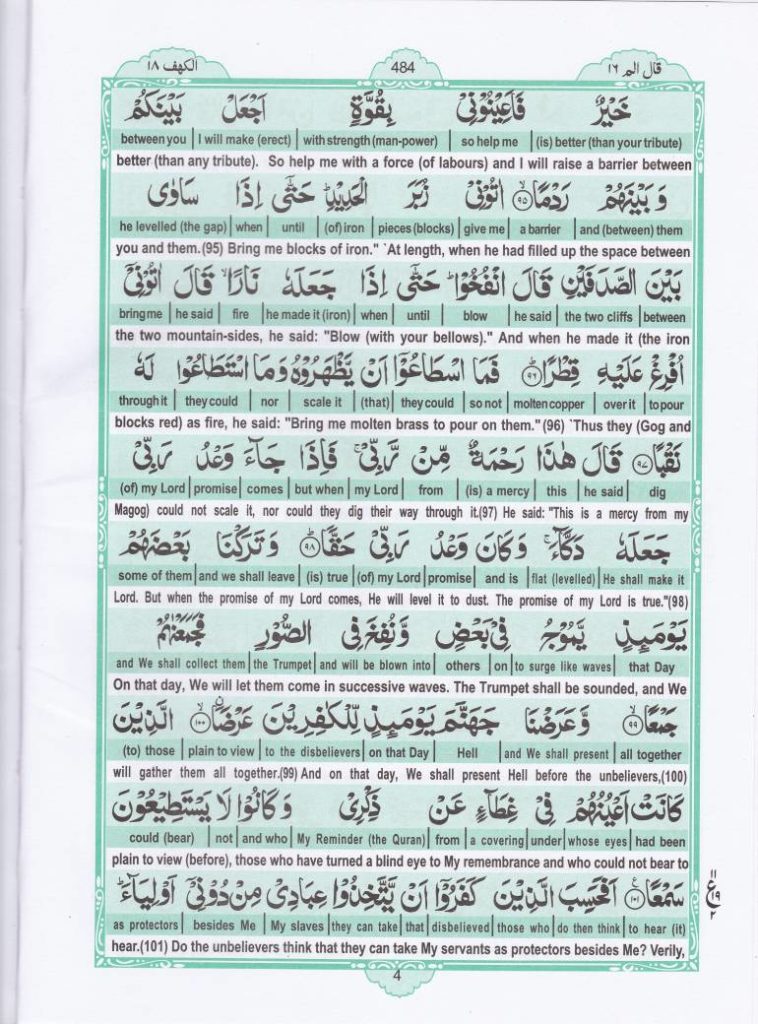 الكهف ١٨ 484 قال الم ١٦
خَيْرٌ فَاَعِيْنُوْنِيْ بِقُوَّةٍ اَجْعَلْ بَيْنَكُمْ
between you | I will make (erect) | with strength (man-power) | so help me | (is) better (than your tribute)
better (than any tribute). So help me with a force (of labours) and I will raise a barrier between
وَ بَيْنَهُمْ رَدْمًا ۙ۹۵ اٰتُوْنِيْ زُبَرَ الْحَدِيْدِ ؕ حَتّٰۤى اِذَا سَاوٰى
he levelled (the gap) | when | until | (of) iron | pieces (blocks) | give me | a barrier | and (between) them
you and them.(95) Bring me blocks of iron." `At length, when he had filled up the space between
بَيْنَ الصَّدَفَيْنِ قَالَ انْفُخُوْا ؕ حَتّٰۤى اِذَا جَعَلَهٗ نَارًا ۙ قَالَ اٰتُوْنِيْۤ
bring me | he said | fire | he made it (iron) | when | until | blow | he said | the two cliffs | between
the two mountain-sides, he said: "Blow (with your bellows)." And when he made it (the iron
اُفْرِغْ عَلَيْهِ قِطْرًا ؕ۹۶ فَمَا اسْطَاعُوْۤا اَنْ يَّظْهَرُوْهُ وَ مَا اسْتَطَاعُوْا لَهٗ
through it | they could | nor | scale it | (that) | they could | so not | molten copper | over it | to pour
blocks red) as fire, he said: "Bring me molten brass to pour on them."(96) `Thus they (Gog and
نَقْبًا ۹۷ قَالَ هٰذَا رَحْمَةٌ مِّنْ رَّبِّيْ ۚ فَاِذَا جَآءَ وَعْدُ رَبِّيْ
(of) my Lord | promise | comes | but when | my Lord | from | (is) a mercy | this | he said | dig
Magog) could not scale it, nor could they dig their way through it.(97) He said: "This is a mercy from my
جَعَلَهٗ دَكَّآءَ ۚ وَ كَانَ وَعْدُ رَبِّيْ حَقًّا ؕ۹۸ وَ تَرَكْنَا بَعْضَهُمْ
some of them | and we shall leave | (is) true | (of) my Lord | promise | and is | flat (levelled) | He shall make it
Lord. But when the promise of my Lord comes, He will level it to dust. The promise of my Lord is true."(98)
يَوْمَئِذٍ يَّمُوْجُ فِيْ بَعْضٍ وَّ نُفِخَ فِي الصُّوْرِ فَجَمَعْنٰهُمْ
and We shall collect them | the Trumpet | and will be blown into | others | on | to surge like waves | that Day
On that day, We will let them come in successive waves. The Trumpet shall be sounded, and We
جَمْعًا ۙ۹۹ وَّ عَرَضْنَا جَهَنَّمَ يَوْمَئِذٍ لِّلْكٰفِرِيْنَ عَرْضًا ۙ۱۰۰ الَّذِيْنَ
(to) those | plain to view | to the disbelievers | on that Day | Hell | and We shall present | all together
will gather them all together.(99) And on that day, We shall present Hell before the unbelievers,(100)
كَانَتْ اَعْيُنُهُمْ فِيْ غِطَآءٍ عَنْ ذِكْرِيْ وَ كَانُوْا لَا يَسْتَطِيْعُوْنَ
could (bear) | not | and who | My Reminder (the Quran) | from | a covering | under | whose eyes | had been
plain to view (before), those who have turned a blind eye to My remembrance and who could not bear to
سَمْعًا ۱۰۱ اَفَحَسِبَ الَّذِيْنَ كَفَرُوْۤا اَنْ يَّتَّخِذُوْا عِبَادِيْ مِنْ دُوْنِيْۤ اَوْلِيَآءَ ؕ
as protectors | besides Me | My slaves | they can take | that | disbelieved | those who | do then think | to hear (it)
hear.(101) Do the unbelievers think that they can take My servants as protectors besides Me? Verily,
۱۱
ع ۱۹
۲
4